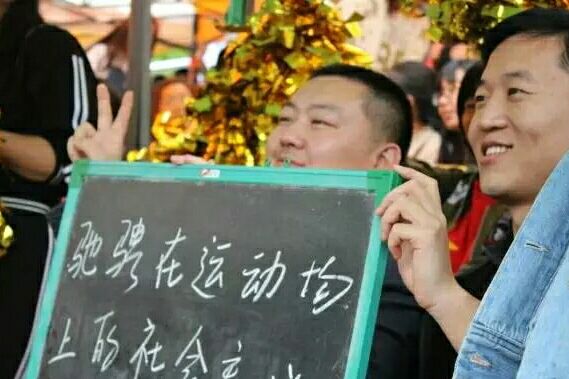 驰骋在运动场
上的社会主